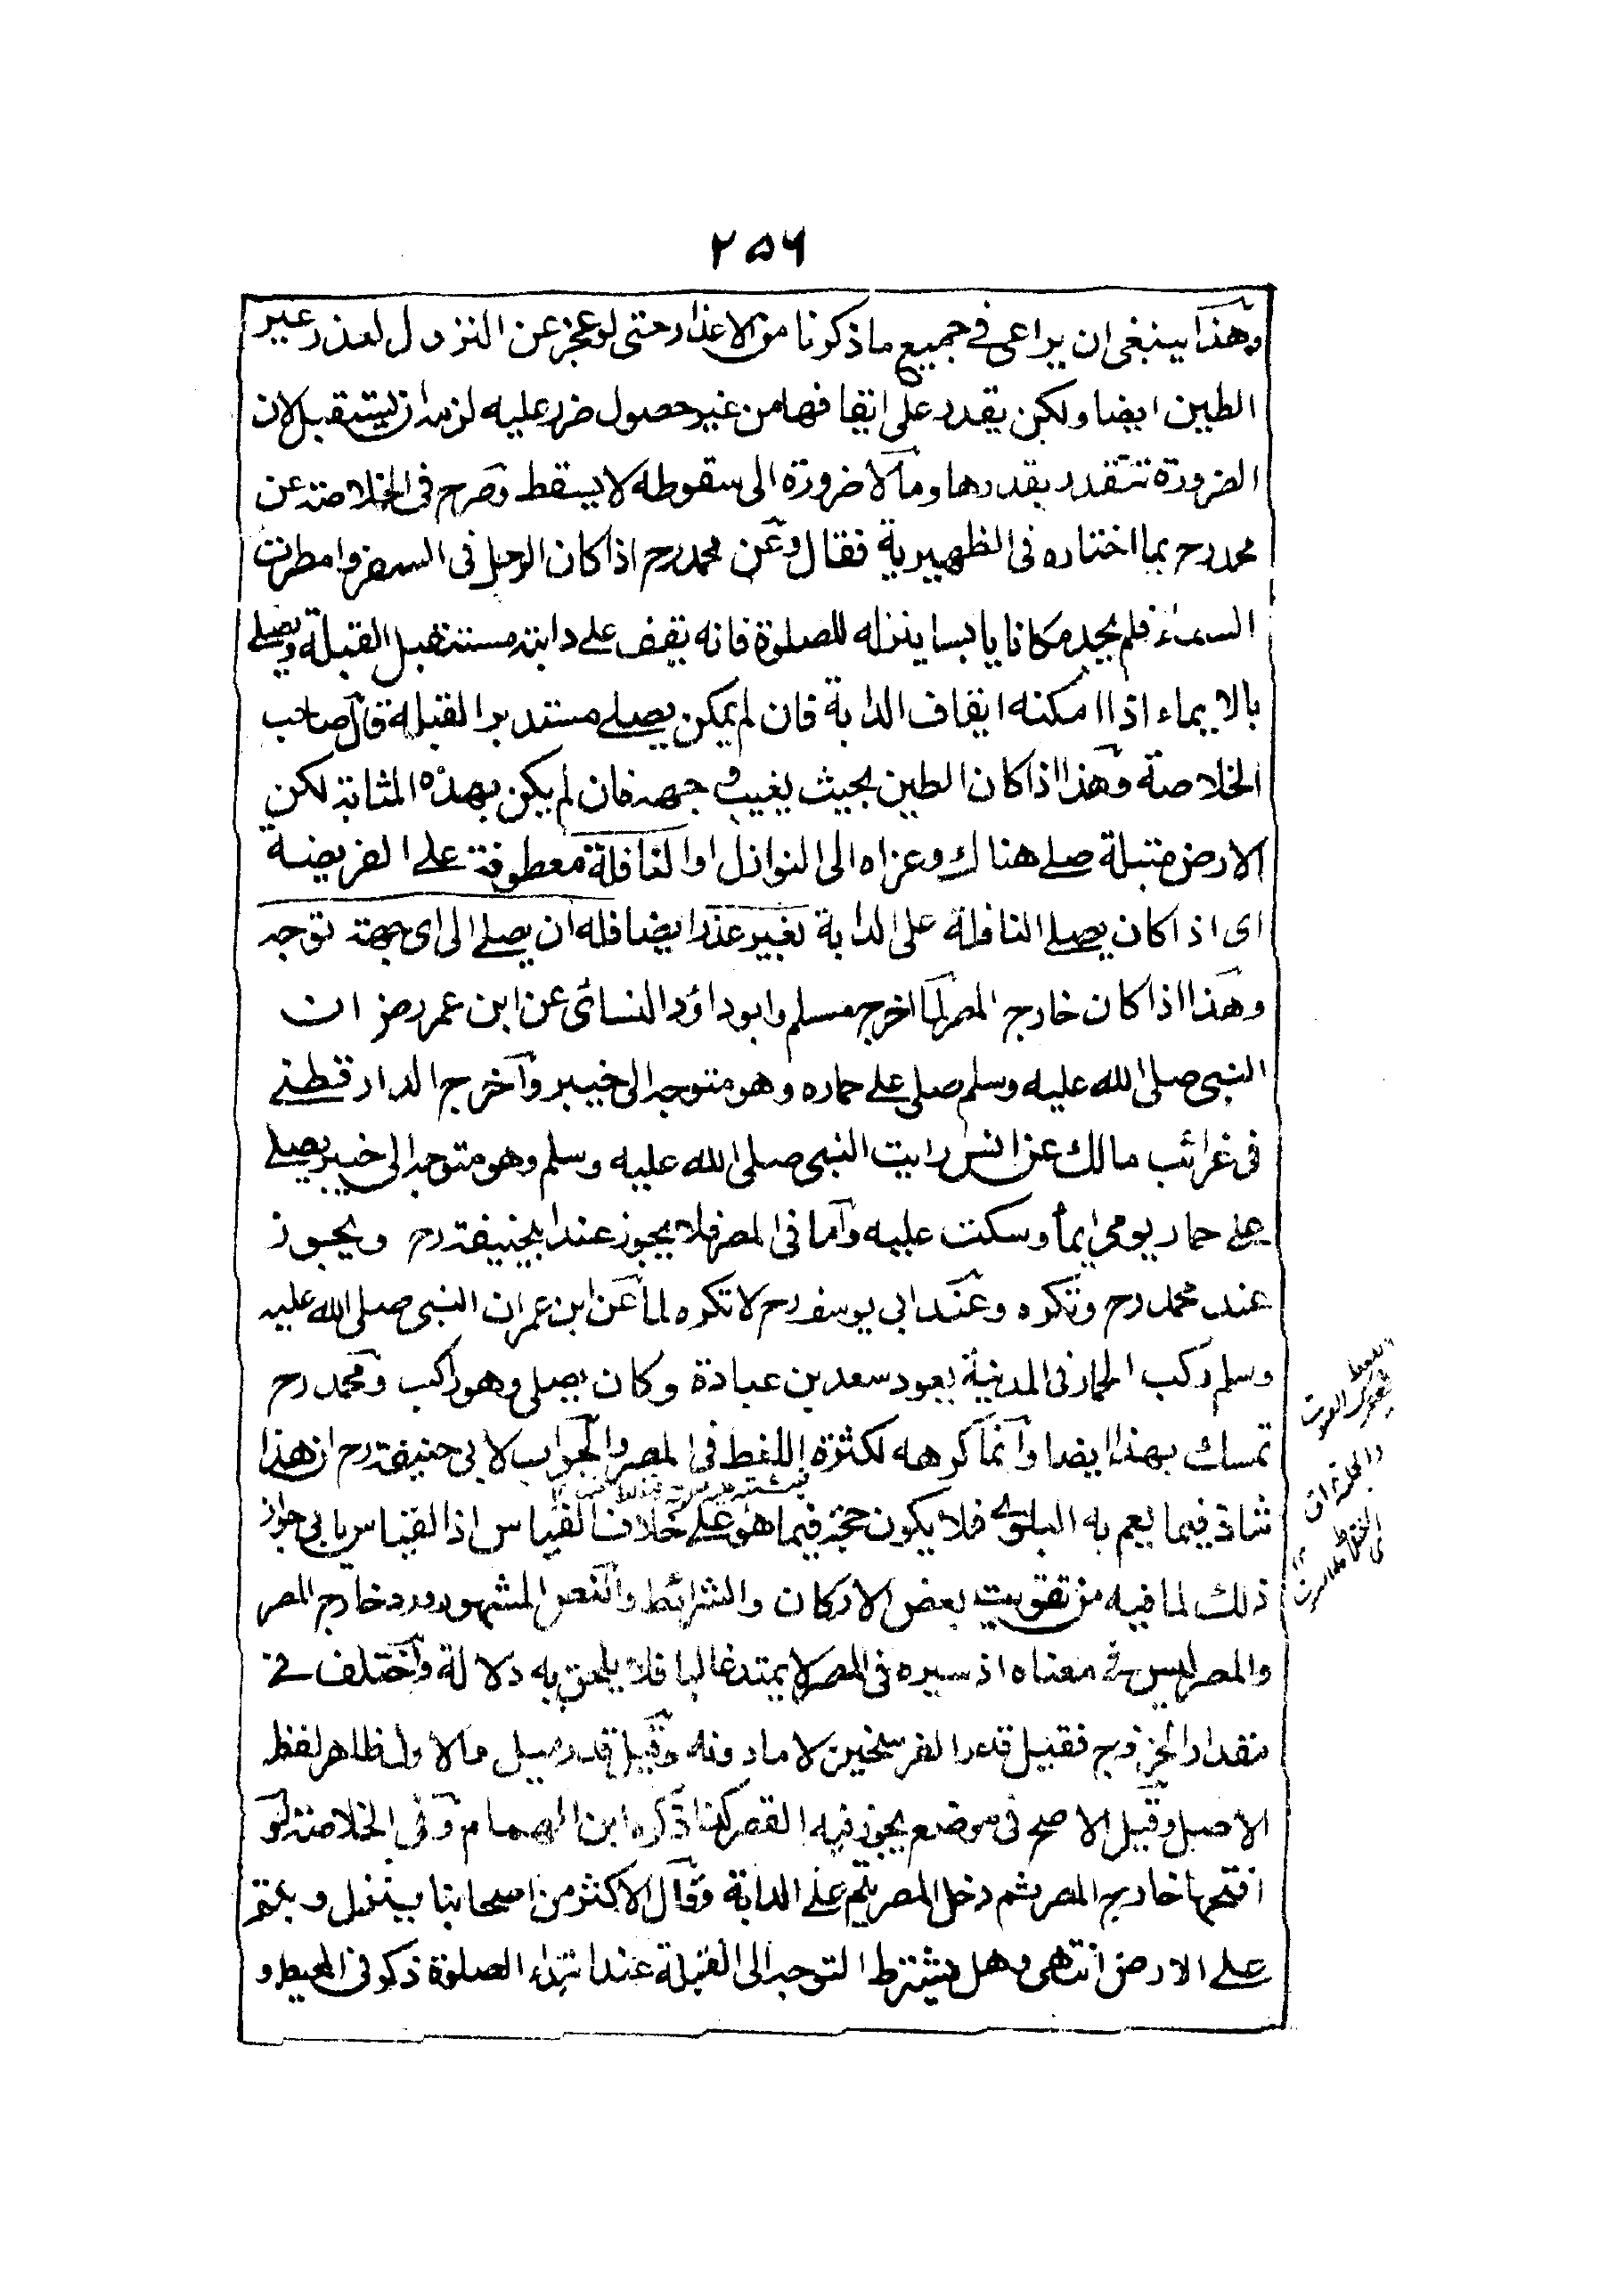 ۲۵۶
وهذا ينبغى ان يراعى فى جميع ما ذكرنا من الاعذار حتى لو عجز عن النزول لعذر غير
الطين ايضا ولكن يقدر على ايقافها من غير حصول ضرر عليه لزمه ان يستقبل لان
الضرورة تتقدر بقدرها وما لا ضرورة الى سقوطه لا يسقط وصرح فى الخلاصة عن
محمد رح بما اختاره فى الظهيرية فقال وعن محمد رح اذا كان الرجل فى السفر وامطرت
السماء فلم يجد مكانا يابسا ينزله للصلوة فانه يقف على دابته مستقبل القبلة ويصلے
بالايماء اذا امكنه ايقاف الدابة فان لم يمكن يصلے مستدبر القبلة قال صاحب
الخلاصة وهذا اذا كان الطين بحيث يغيب وجهه فان لم يكن بهذه المثابة لكن
الارض مبتلة صلے هناك وعزاه الى النوازل او النافلة معطوفة على الفريضة
اى اذا كان يصلے النافلة على الدابة بغير عذر ايضا فله ان يصلے الى اى جهة توجه
وهذا اذا كان خارج المصر لما اخرج مسلم وابو داؤد والنسائى عن ابن عمر رض ان
النبى صلى الله عليه وسلم صلى على حماره وهو متوجه الى خيبر وآخرج الدارقطنے
فى غرائب مالك عن انس رايت النبى صلى الله عليه وسلم وهو متوجه الى خيبر يصلے
على حمار يومى ايماء وسكت عليه وآما فى المصر فلا يجوز عند ابيحنيفة رح ويجوز
عند محمد رح وتكره وعند ابى يوسف رح لا تكره لما عن ابن عمر ان النبى صلى الله عليه
وسلم ركب الحمار فى المدينة يعود سعد بن عبادة وكان يصلى وهو راكب ومحمد رح
تمسك بهذا ايضا وآنما كرهه لكثرة اللغط فى المصر والجواب لابى حنيفة رح ان هذا
شاذ فيما يعم به البلوى فلا يكون حجة فيما هو على خلاف القياس اذ القياس يابى جواز
ذلك لما فيه من تفويت بعض الاركان والشرائط والنص المشهور ورد خارج المصر
والمصر ليس فى معناه اذ سيره فى المصر لا يمتد غالبا فلا يلحق به دلالة وآختلف فى
مقدار الخروج فقيل قدر الفرسخين لا ما دونه وقيل قدر ميل والاول ظاهر لفظ
الاصل وقيل الاصح فى موضع يجوز فيه القصر كذا ذكره ابن الهمام وفى الخلاصة لو
افتتحها خارج المصر ثم دخل المصر يتم على الدابة وقال الاكثر من اصحابنا ينزل ويتم
على الارض انتهى وهل يشترط التوجه الى القبلة عند ابتداء الصلوة ذكر فى المحيط و